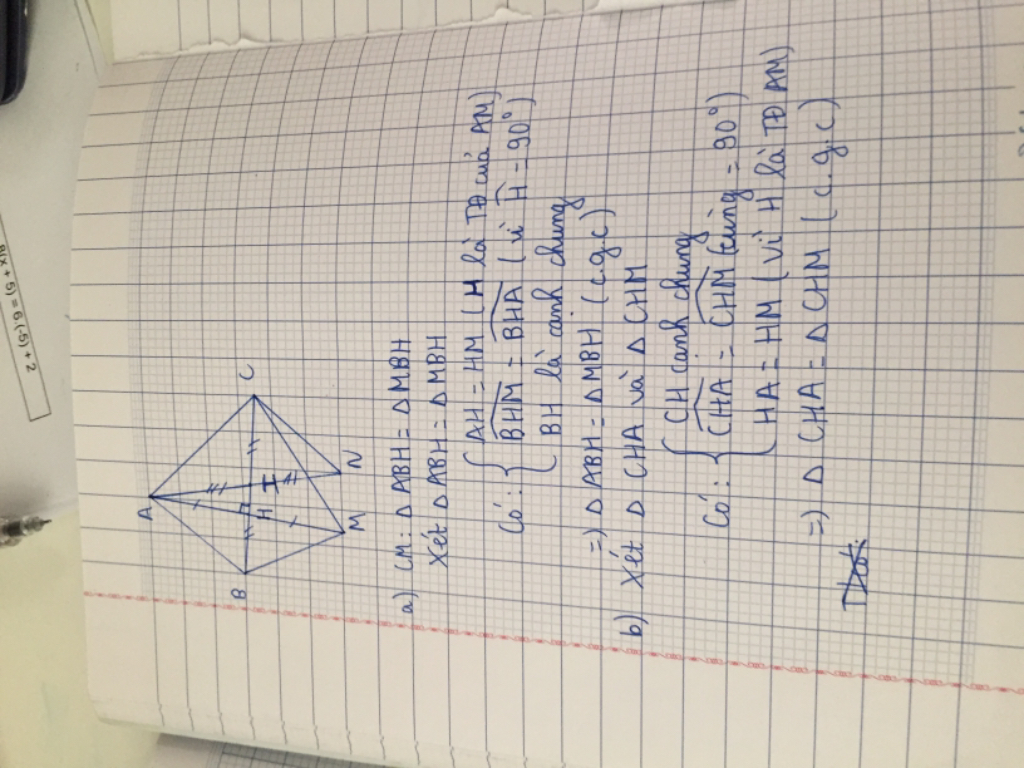 8(x + 5) = 6.(-5) + 2
A
B
C
H
I
M
N
a) CM: Δ ABH = Δ MBH
Xét Δ ABH = Δ MBH
Có: { AH = HM (H là TĐ của AM)
BHM = BHA (vì H = 90°)
BH là cạnh chung
=) Δ ABH = Δ MBH (c.g.c)
b) Xét Δ CHA và Δ CHM
Có: { CH cạnh chung
CHA = CHM (cùng = 90°)
HA = HM (vì H là TĐ AM)
=) Δ CHA = Δ CHM (c.g.c)